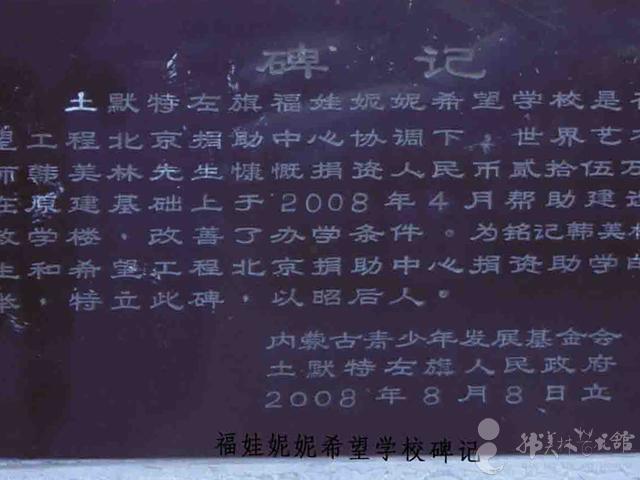 碑记
土默特左旗福娃妮妮希望学校是
望工程北京捐助中心协调下，世界艺
师韩美林先生慷慨捐资人民币贰拾伍万
在原建基础上于2008年4月帮助建
教学楼，改善了办学条件。为铭记韩美林
生和希望工程北京捐助中心捐资助学的
举，特立此碑，以昭后人。
内蒙古青少年发展基金会
土默特左旗人民政府
2008年8月8日立
福娃妮妮希望学校碑记
韩美林艺术馆